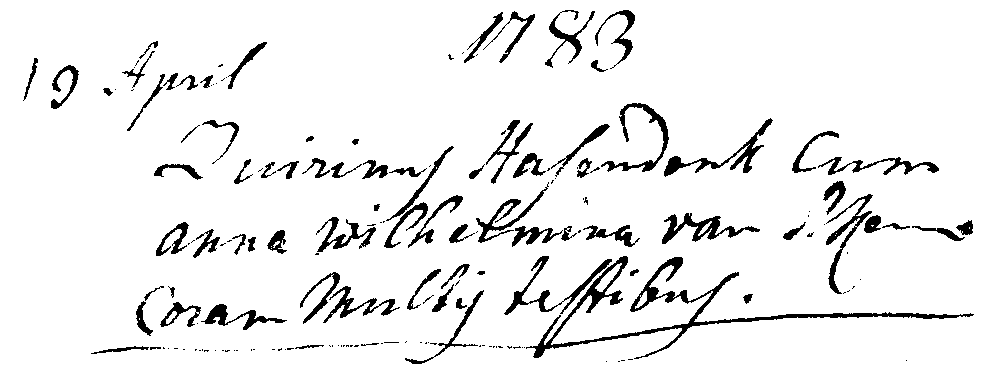 1783
19 April
Quirinus Hasendonk Cum
anna wilhelmina van
Coram Multis testibus.